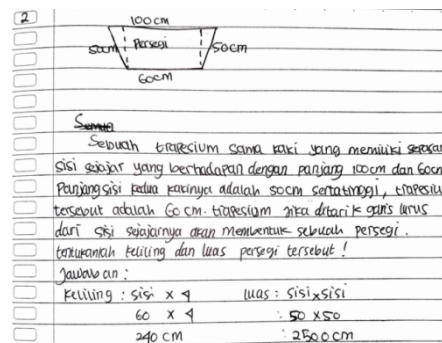 2
100 cm
50cm Persegi 50cm
60cm
Sebuah trapesium sama kaki yang memiliki sepasan
sisi sejajar yang berhadapan dengan panjang 100cm dan 60cm
Panjang sisi kedua kakinya adalah 50cm serta tinggi, trapesiu
tersebut adalah 60 cm. trapesium jika ditarik garis lurus
dari sisi sejajarnya akan membentuk sebuah persegi.
tentukanlah keliling dan luas persegi tersebut !
Jawaban :
Keliling : sisi x 4 luas : sisi x sisi
60 x 4 : 50 x 50
240 cm : 2500cm